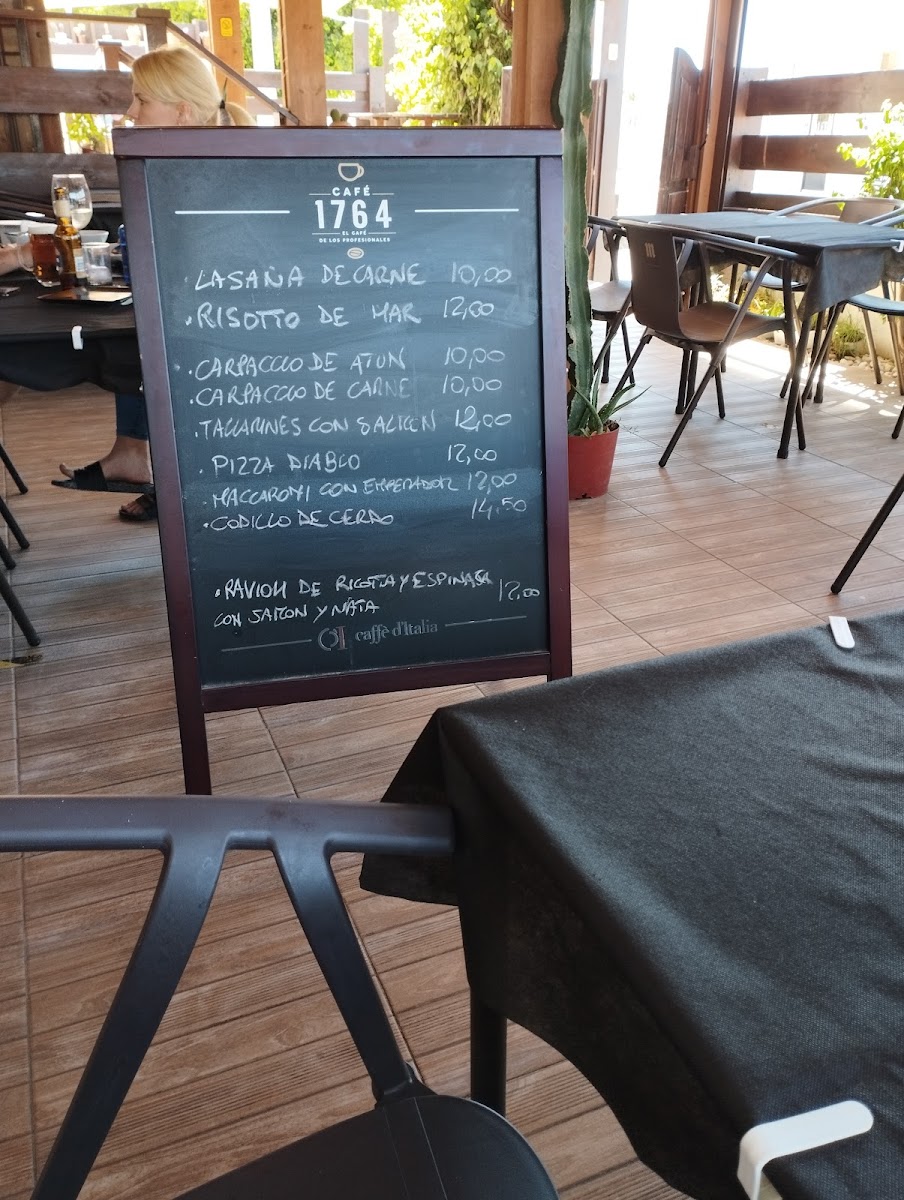 CAFÉ
1764
EL CAFÉ
DE LOS PROFESIONALES
· LASAÑA DE CARNE 10,00
· RISOTTO DE MAR 12,00
· CARPACCIO DE ATUN 10,00
· CARPACCIO DE CARNE 10,00
· TALLARINES CON SALMON 12,00
· PIZZA DIABLO 12,00
· MACCARONI CON EMPERADOR 12,00
· CODILLO DE CERDO 14,50
· RAVIOLI DE RICOTTA Y ESPINACA 12,00
CON SALMON Y NATA
CI caffè d'Italia